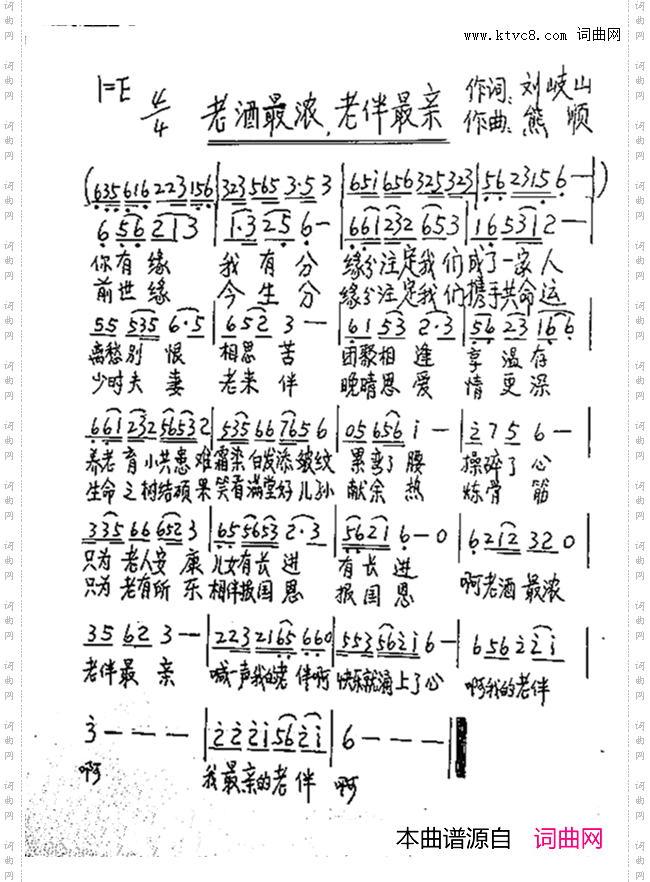 www.ktvc8.com 词曲网
1=E 4/4 老酒最浓,老伴最亲 作词:刘岐山
作曲:熊顺
(635 616 223 156 | 323 565 3·5 3 | 651 656 325 323 | 56 2315 6 — )
6 56 213 | 1·3 25 6 — | 661 232 653 | 16 531 2 — |
你有缘 我有分 缘分注定我们成了一家人
前世缘 今生分 缘分注定我们携手共命运
55 535 6·5 | 652 3 — | 61 53 2·3 | 56 23 166 |
离愁别恨 相思苦 团聚相逢 享温存
少时夫妻 老来伴 晚晴恩爱 情更深
661 232 5653 2 | 535 66 765 6 | 05 656 i — | 2 7 5 6 — |
养老育小共患难霜染白发添皱纹 累弯了腰 操碎了心
生命之树结硕果笑看满堂好儿孙 献余热 炼骨筋
335 66 652 3 | 65 5653 2·3 | 5621 6 — 0 | 6212 320
只为老人安康儿女有长进 有长进 啊老酒最浓
只为老有所乐相伴报国恩 报国恩
35 62 3 — | 223 2165 660 | 553 562i 6 — | 656 22i
老伴最亲 喊一声我的老伴啊 快乐就涌上了心 啊我的老伴
3 — — — | 222i 562i | 6 — — — ‖
啊 我最亲的老伴 啊
本曲谱源自 词曲网
词曲网